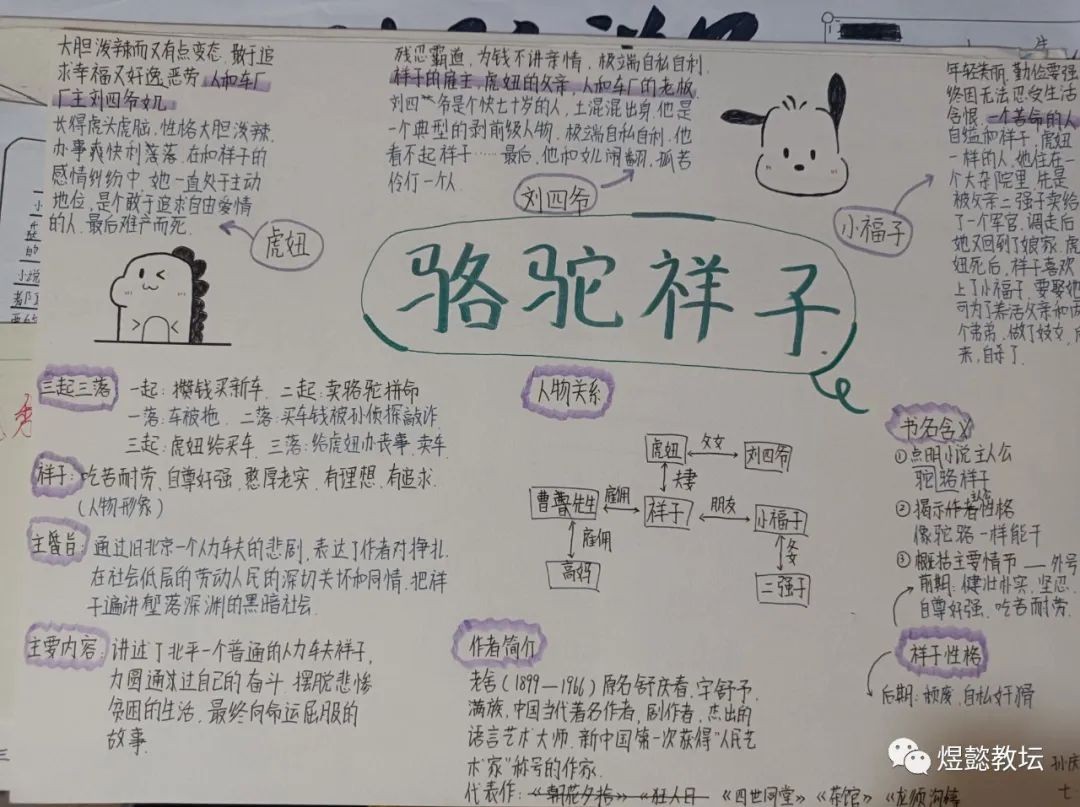 大胆泼辣而又有点变态、敢于追
求幸福又好逸恶劳、人和车厂
厂主刘四爷女儿
长得虎头虎脑，性格大胆泼辣，
办事爽快利落，在和祥子的
感情纠纷中，她一直处于主动
地位，是个敢于追求自由爱情
的人，最后难产而死．
虎妞
残忍霸道，为钱不讲亲情，极端自私自利，
祥子的雇主，虎妞的父亲，人和车厂的老板．
刘四爷是个快七十岁的人，土混混出身，他是
一个典型的剥削级人物，极端自私自利，他
看不起祥子……最后，他和女儿闹翻，孤苦
伶仃一个人．
刘四爷
年轻美丽，勤俭要强
终因无法忍受生活
含恨，一个苦命的人
自缢和祥子，虎妞
一样的人，她住在一
个大杂院里，先是
被父亲二强子卖给
了一个军官，调走后
她又回到了娘家，虎
妞死后，祥子喜欢
上了小福子，要娶她
可为了养活父亲和两
个弟弟，做了妓女，后
来，自杀了．
小福子
骆驼祥子
三起三落
一起：攒钱买新车． 二起：卖骆驼拼命
一落：车被拖． 二落：买车钱被孙侦探敲诈．
三起：虎妞给买车． 三落：给虎妞办丧事，卖车．
祥子：吃苦而耐劳、自尊好强、憨厚老实、有理想、有追求．
（人物形象）
主旨：通过旧北京一个人力车夫的悲剧，表达了作者对挣扎
在社会低层的劳动人民的深切关怀和同情，把祥
子逼讲堕落深渊的黑暗社会．
主要内容：讲述了北平一个普通的人力车夫祥子，
力图通过自己的奋斗，摆脱悲惨
贫困的生活，最终向命运屈服的
故事．
人物关系
虎妞
父女
刘四爷
夫妻
曹先生
雇佣
祥子
朋友
小福子
雇佣
父女
高妈
二强子
作者简介
老舍（1899—1966）原名舒庆春，字舒予，
满族，中国当代著名作者，剧作者，杰出的
语言艺术大师，新中国第一次获得"人民艺
术家"称号的作家．
代表作：《朝花夕拾》《狂人日 《四世同堂》《茶馆》《龙须沟等
书名含义
①点明小说主人公
驼骆祥子
②揭示作者性格
像驼骆一样能干
③概括主要情节——外号
前期：健壮朴实、坚忍、
自尊好强、吃苦耐劳．
祥子性格
后期：颓废，自私奸猾
煜懿教坛